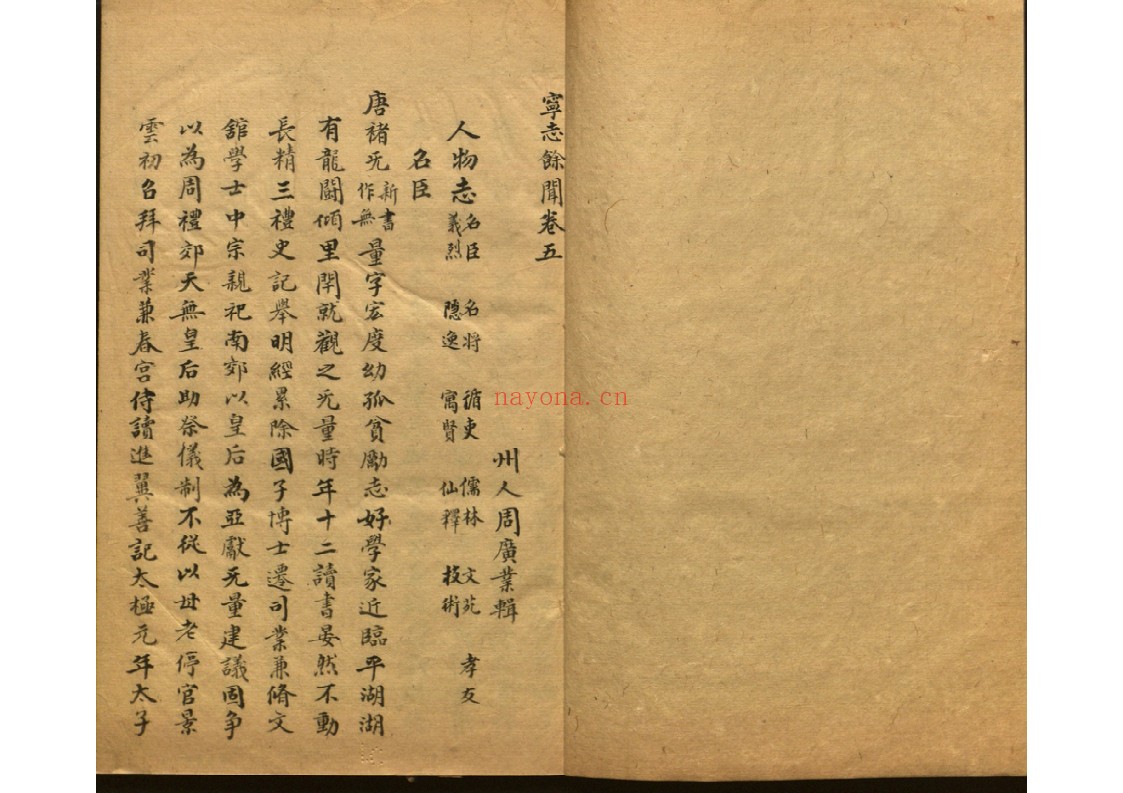 寧志餘聞卷五
州人周廣業輯
人物志 名臣 名將 循吏 儒林 文苑 孝友
義烈 隱逸 寓賢 仙釋 技術
名臣
唐褚旡新書作無量字宏度幼孤貧勵志好學家近臨平湖湖
有龍鬪傾里閈就觀之旡量時年十二讀書晏然不動
長精三禮史記舉明經累除國子博士遷司業兼脩文
舘學士中宗親祀南郊以皇后為亞獻旡量建議固争
以為周禮郊天無皇后助祭儀制不從以母老停官景
雲初召拜司業兼春宮侍讀進翼善記太極元年太子
nayona.cn